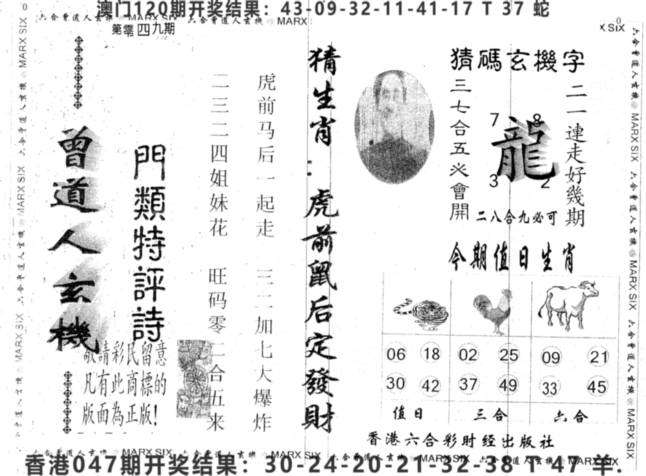 澳门120期开奖结果：43-09-32-11-41-17 T 37 蛇
六合曾道人玄機 ® MARX SIX
第零四九期
猜碼玄機字
二一連走好幾期
龍
7 8
3 2
三七合五必會開
二八合九必可
今期值日生肖
06 18 02 25 09 21
30 42 37 49 33 45
值日 三合 六合
香港六合彩财经出版社
猜生肖：虎前鼠后定發財
虎前马后一起走 三二加七大爆炸
二三二二四姐妹花 旺码零二合五来
門類特評詩
曾道人玄機
敬請彩民留意
凡有此商標的
版面為正版！
香港047期开奖结果：30-24-20-21-32-38 T 47 羊